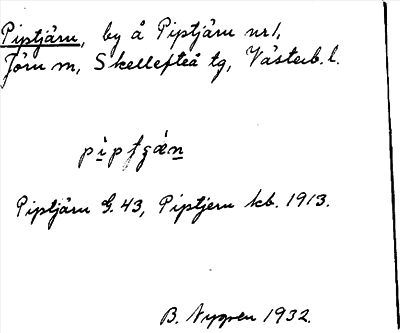 Piptjärn, by å Piptjärn nr 1,
Jörn sn, Skellefteå tg, Västerb. l.
Piptjärn G. 43, Piptjern kb. 1913.
B. Nygren 1932.